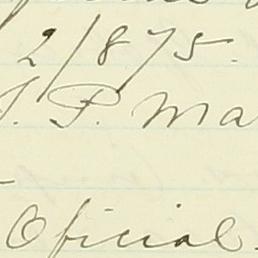 2/875.
J. P. Ma
Oficial.